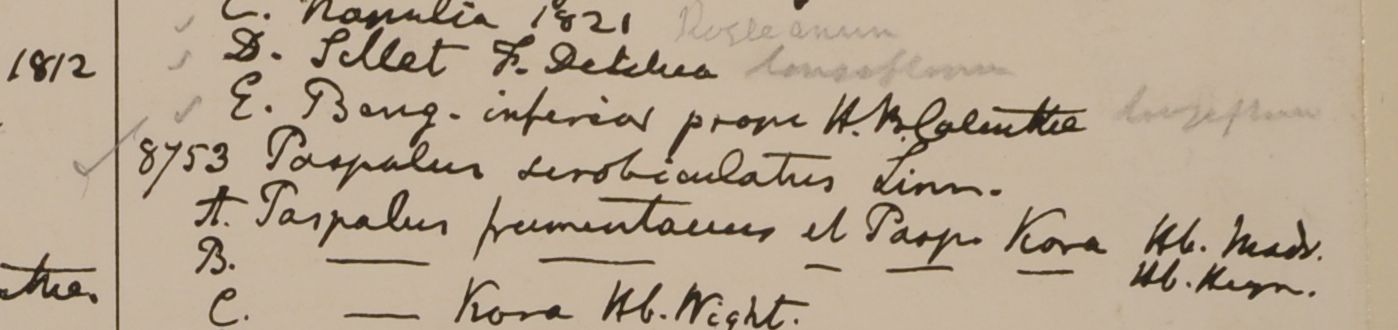 C. Napalia 1821 Royleanum
1812 D. Sillet F. De longiflorum
E. Beng. inferior prope H.B. Calcuttae longiflorum
8753 Paspalus scrobiculatus Linn.
A. Paspalus frumentaceus et Pasp. Kora Hb. Madr.
B. — — — — — Hb. Heyn.
C. — Kora Hb. Wight.